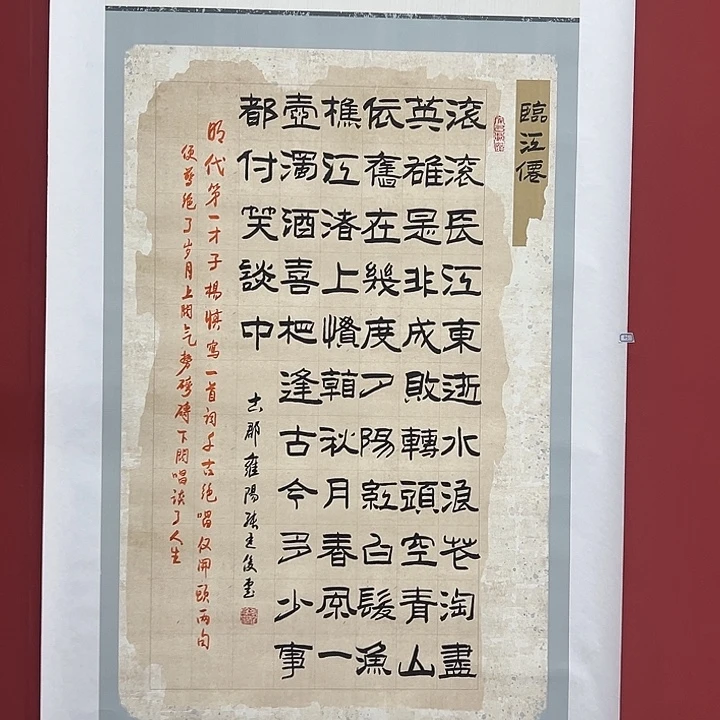 臨江僊
滚滚長江東逝水浪花淘盡
英雄是非成敗轉頭空青山
依舊在幾度夕陽紅白髮漁
樵江渚上慣看秋月春風一
壺濁酒喜相逢古今多少事
都付笑談中
古郡雍陽書
明代第一才子楊慎寫一首词千古绝唱仅開頭两句
便绝了岁月上阕气势磅礴下阕唱谈了人生